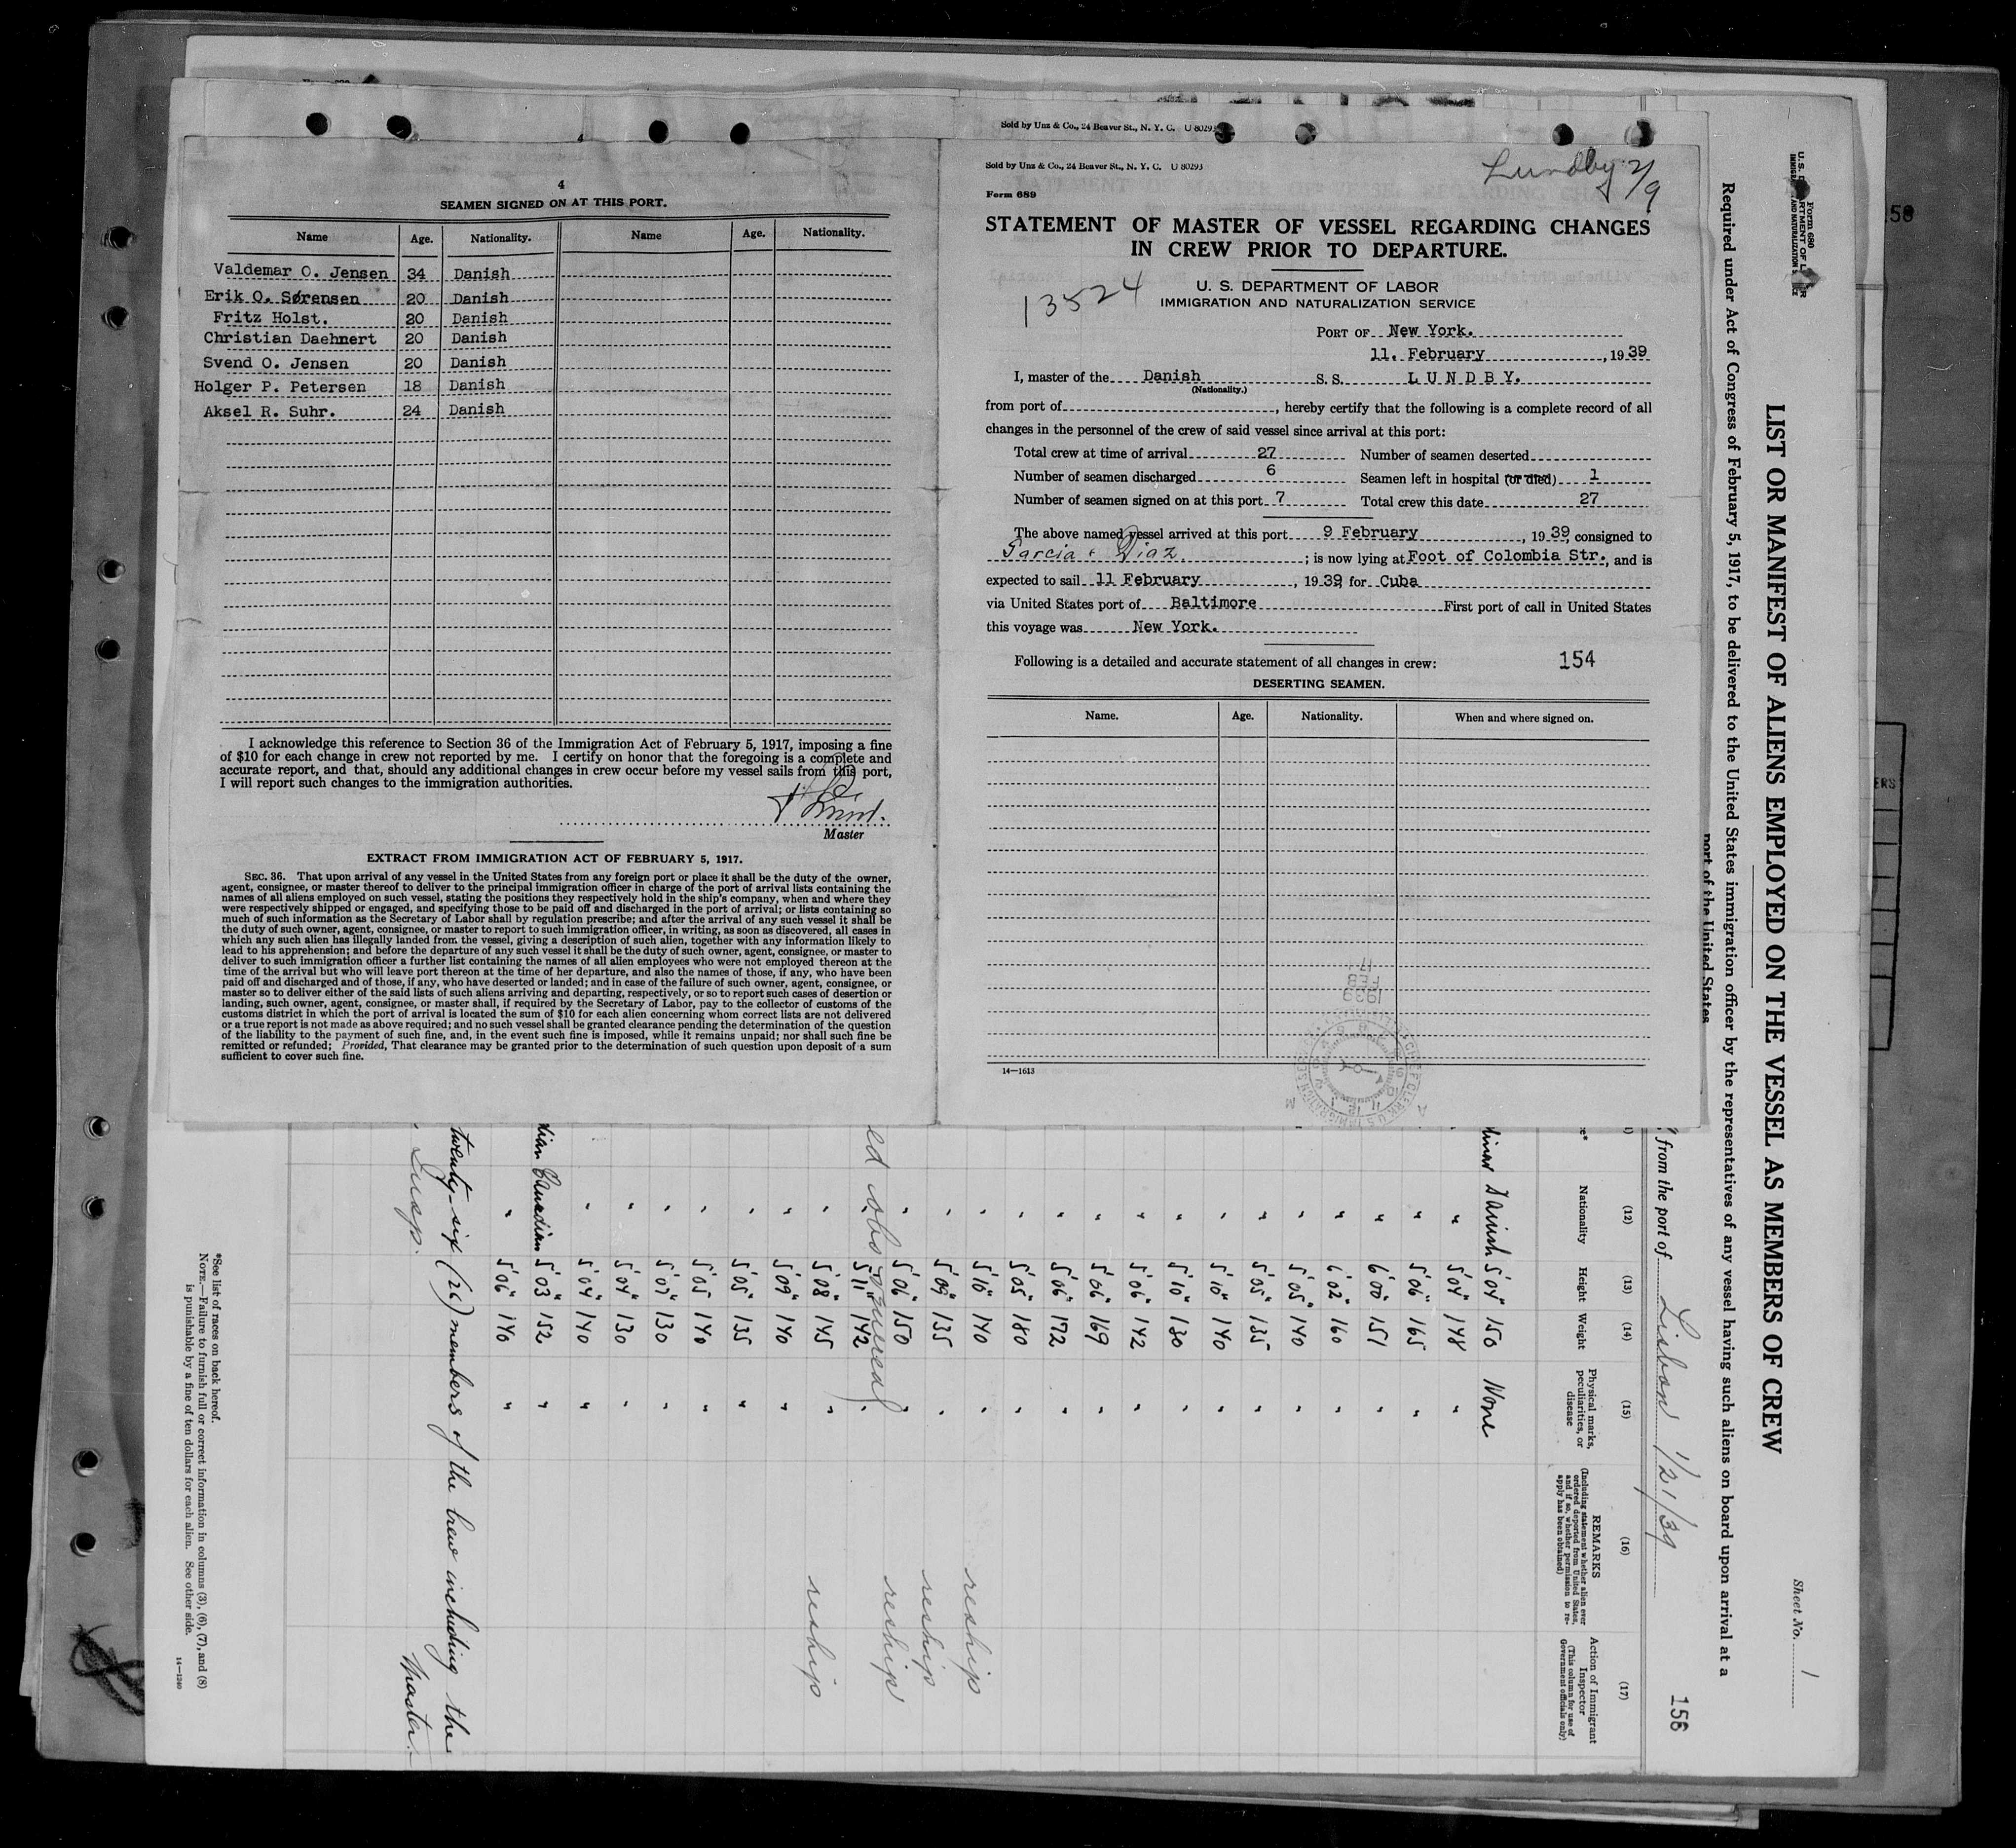 4
SEAMEN SIGNED ON AT THIS PORT.
Name Age. Nationality. Name Age. Nationality.
Valdemar O. Jensen 34 Danish
Erik O. Sørensen 20 Danish
Fritz Holst. 20 Danish
Christian Daehnert 20 Danish
Svend O. Jensen 20 Danish
Holger P. Petersen 18 Danish
Aksel R. Suhr. 24 Danish
I acknowledge this reference to Section 36 of the Immigration Act of February 5, 1917, imposing a fine
of $10 for each change in crew not reported by me. I certify on honor that the foregoing is a complete and
accurate report, and that, should any additional changes in crew occur before my vessel sails from this port,
I will report such changes to the immigration authorities.
Master
EXTRACT FROM IMMIGRATION ACT OF FEBRUARY 5, 1917.
SEC. 36. That upon arrival of any vessel in the United States from any foreign port or place it shall be the duty of the owner,
agent, consignee, or master thereof to deliver to the principal immigration officer in charge of the port of arrival lists containing the
names of all aliens employed on such vessel, stating the positions they respectively hold in the ship's company, when and where they
were respectively shipped or engaged, and specifying those to be paid off and discharged in the port of arrival; or lists containing so
much of such information as the Secretary of Labor shall by regulation prescribe; and after the arrival of any such vessel it shall be
the duty of such owner, agent, consignee, or master to report to such immigration officer, in writing, as soon as discovered, all cases in
which any such alien has illegally landed from the vessel, giving a description of such alien, together with any information likely to
lead to his apprehension; and before the departure of any such vessel it shall be the duty of such owner, agent, consignee, or master to
deliver to such immigration officer a further list containing the names of all alien employees who were not employed thereon at the
time of the arrival but who will leave port thereon at the time of her departure, and also the names of those, if any, who have been
paid off and discharged and of those, if any, who have deserted or landed; and in case of the failure of such owner, agent, consignee, or
master so to deliver either of the said lists of such aliens arriving and departing, respectively, or so to report such cases of desertion or
landing, such owner, agent, consignee, or master shall, if required by the Secretary of Labor, pay to the collector of customs of the
customs district in which the port of arrival is located the sum of $10 for each alien concerning whom correct lists are not delivered
or a true report is not made as above required; and no such vessel shall be granted clearance pending the determination of the question
of the liability to the payment of such fine, and, in the event such fine is imposed, while it remains unpaid; nor shall such fine be
remitted or refunded; Provided, That clearance may be granted prior to the determination of such question upon deposit of a sum
sufficient to cover such fine.
Sold by Unz & Co., 24 Beaver St., N. Y. C. U 80293
Sold by Unz & Co., 24 Beaver St., N. Y. C. U 80293
Lundby 2/9
Form 689
STATEMENT OF MASTER OF VESSEL REGARDING CHANGES
IN CREW PRIOR TO DEPARTURE.
13524
U. S. DEPARTMENT OF LABOR
IMMIGRATION AND NATURALIZATION SERVICE
PORT OF New York.
11. February, 1939
I, master of the Danish S. S. LUNDBY.
(Nationality.)
from port of , hereby certify that the following is a complete record of all
changes in the personnel of the crew of said vessel since arrival at this port:
Total crew at time of arrival 27 Number of seamen deserted
Number of seamen discharged 6 Seamen left in hospital (or died) 1
Number of seamen signed on at this port 7 Total crew this date 27
The above named vessel arrived at this port 9 February, 1939, consigned to
Garcia & Diaz. ; is now lying at Foot of Colombia Str., and is
expected to sail 11 February, 1939, for Cuba
via United States port of Baltimore First port of call in United States
this voyage was New York.
Following is a detailed and accurate statement of all changes in crew: 154
DESERTING SEAMEN.
Name. Age. Nationality. When and where signed on.
17
FEB
1939
14—1613
Form 680
Sheet No. 1
LIST OR MANIFEST OF ALIENS EMPLOYED ON THE VESSEL AS MEMBERS OF CREW
Required under Act of Congress of February 5, 1917, to be delivered to the United States immigration officer by the representatives of any vessel having such aliens on board upon arrival at a
port of the United States
from the port of Lisbon 1/21/39
156
(12) (13) (14) (15) (16) (17)
Nationality Height Weight Physical marks, peculiarities, or disease REMARKS (Including statement whether alien ever ordered deported from United States, and if so, whether permission to re-apply has been obtained) Action of Immigrant Inspector (This column for use of Government officials only)
Danish 5'04" 150 None
" 5'04" 148 "
" 5'06" 165 "
" 6'00" 151 "
" 6'02" 160 "
" 5'05" 140 "
" 5'05" 135 "
" 5'10" 140 "
" 5'10" 130 "
" 5'06" 142 "
" 5'06" 169 "
" 5'06" 172 "
" 5'05" 180 "
" 5'10" 140 " reship
" 5'09" 135 " reship
" 5'06" 150 " reship
" 5'11" 142 "
" 5'08" 145 " reship
" 5'09" 140 "
" 5'05" 135 "
" 5'05 140 "
" 5'07" 130 "
" 5'04" 130 "
" 5'04" 140 "
Canadian 5'03" 152 "
" 5'06" 140 "
twenty-six (26) members of the crew including the
Master.
Insp.
*See list of races on back hereof.
NOTE.—Failure to furnish full or correct information in columns (3), (6), (7), and (8)
is punishable by a fine of ten dollars for each alien. See other side.
14—1240
58
ERS